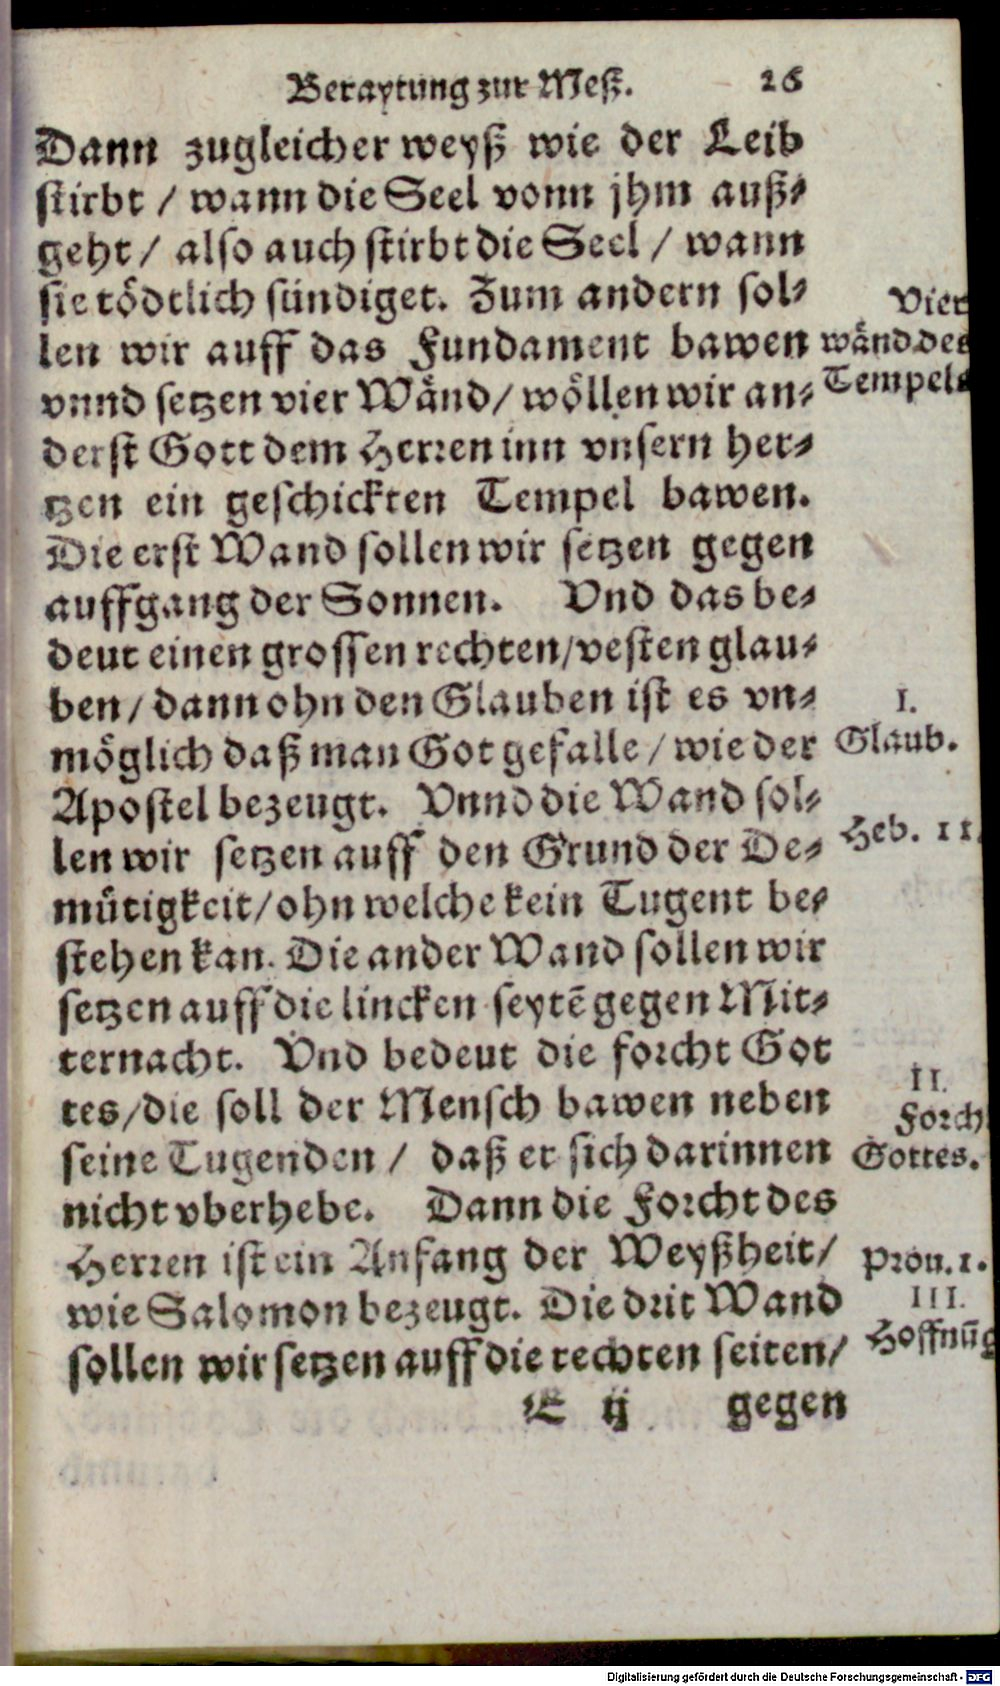 Beraytung zur Meß. 26
Dann zugleicher weyß wie der Leib
stirbt / wann die Seel vonn jhm auß⸗
geht / also auch stirbt die Seel / wann
sie tödtlich sündiget. Zum andern sol⸗
len wir auff das Fundament bawen
vnnd setzen vier Wänd / wöllen wir an⸗
derst Gott dem Herren inn vnsern her⸗
tzen ein geschickten Tempel bawen.
Die erst Wand sollen wir setzen gegen
auffgang der Sonnen. Vnd das be⸗
deut einen grossen rechten / vesten glau⸗
ben / dann ohn den Glauben ist es vn⸗
möglich daß man Got gefalle / wie der
Apostel bezeugt. Vnnd die Wand sol⸗
len wir setzen auff den Grund der De⸗
mütigkeit / ohn welche kein Tugent be⸗
stehen kan. Die ander Wand sollen wir
setzen auff die lincken seytē gegen Mit⸗
ternacht. Vnd bedeut die forcht Got
tes / die soll der Mensch bawen neben
seine Tugenden / daß er sich darinnen
nicht vberhebe. Dann die Forcht des
Herren ist ein Anfang der Weyßheit /
wie Salomon bezeugt. Die drit Wand
sollen wir setzen auff die rechten seiten /
E ij gegen
Vier
wänd des
Tempels
I.
Glaub.
Heb. 11.
II.
Forch
Gottes.
Prou. 1.
III.
Hoffnūg
Digitalisierung gefördert durch die Deutsche Forschungsgemeinschaft - DFG